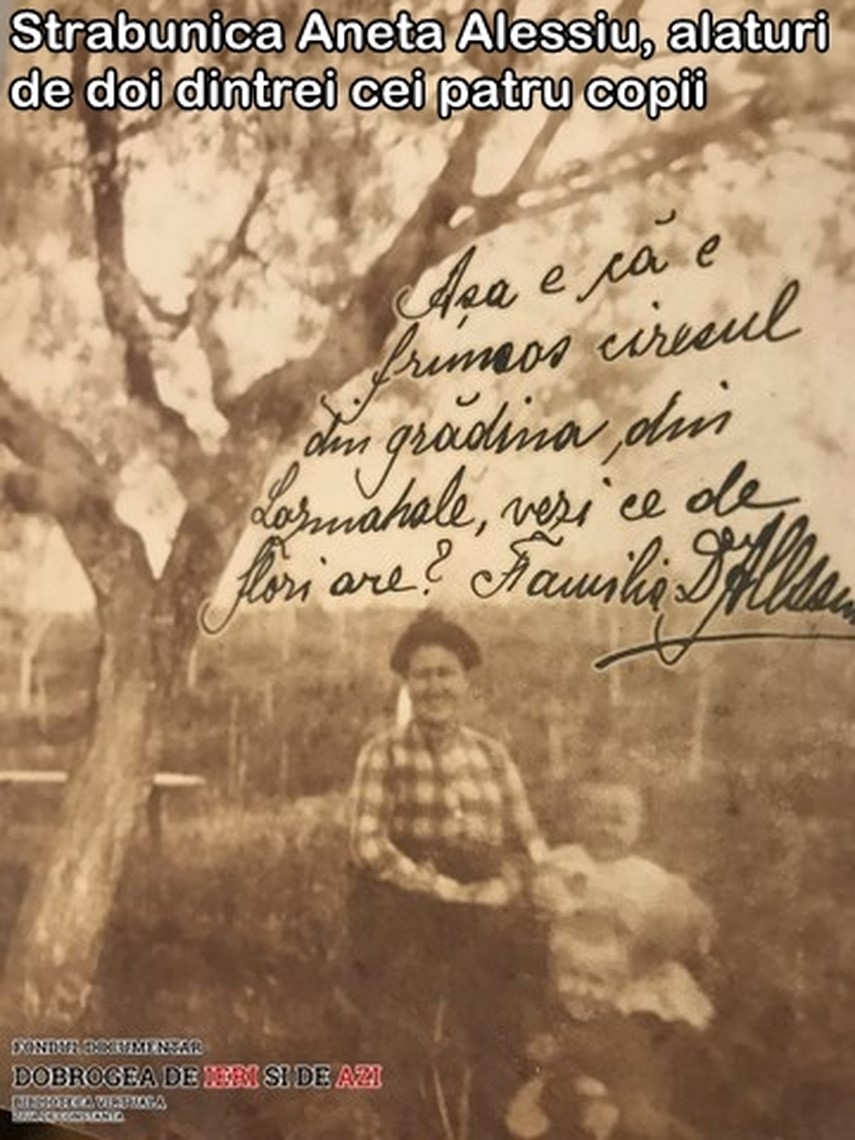 Strabunica Aneta Alessiu, alaturi
de doi dintrei cei patru copii
Așa e că e
frumos ciresul
din grădina, din
Lazmahale, vezi ce de
flori are? Familia D Alessiu
FONDUL DOCUMENTAR
DOBROGEA DE IERI SI DE AZI
BIBLIOTECA VIRTUALA
ZIUA DE CONSTANTA